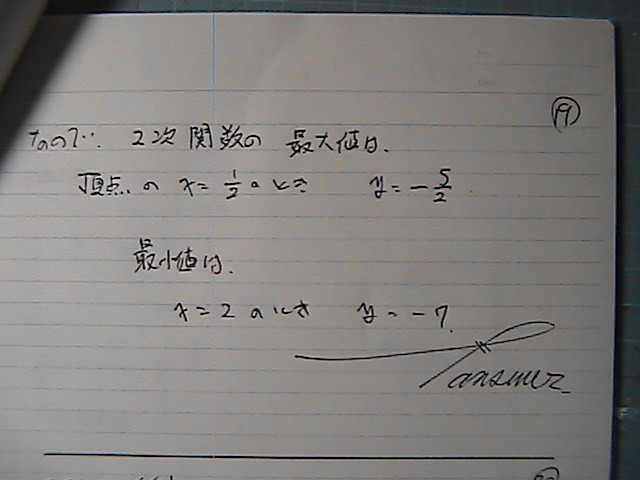 ⑲
なので、2次関数の最大値は、
頂点のx=1/2のとき y=-5/2.
最小値は、
x=2のとき y=-7.
answer